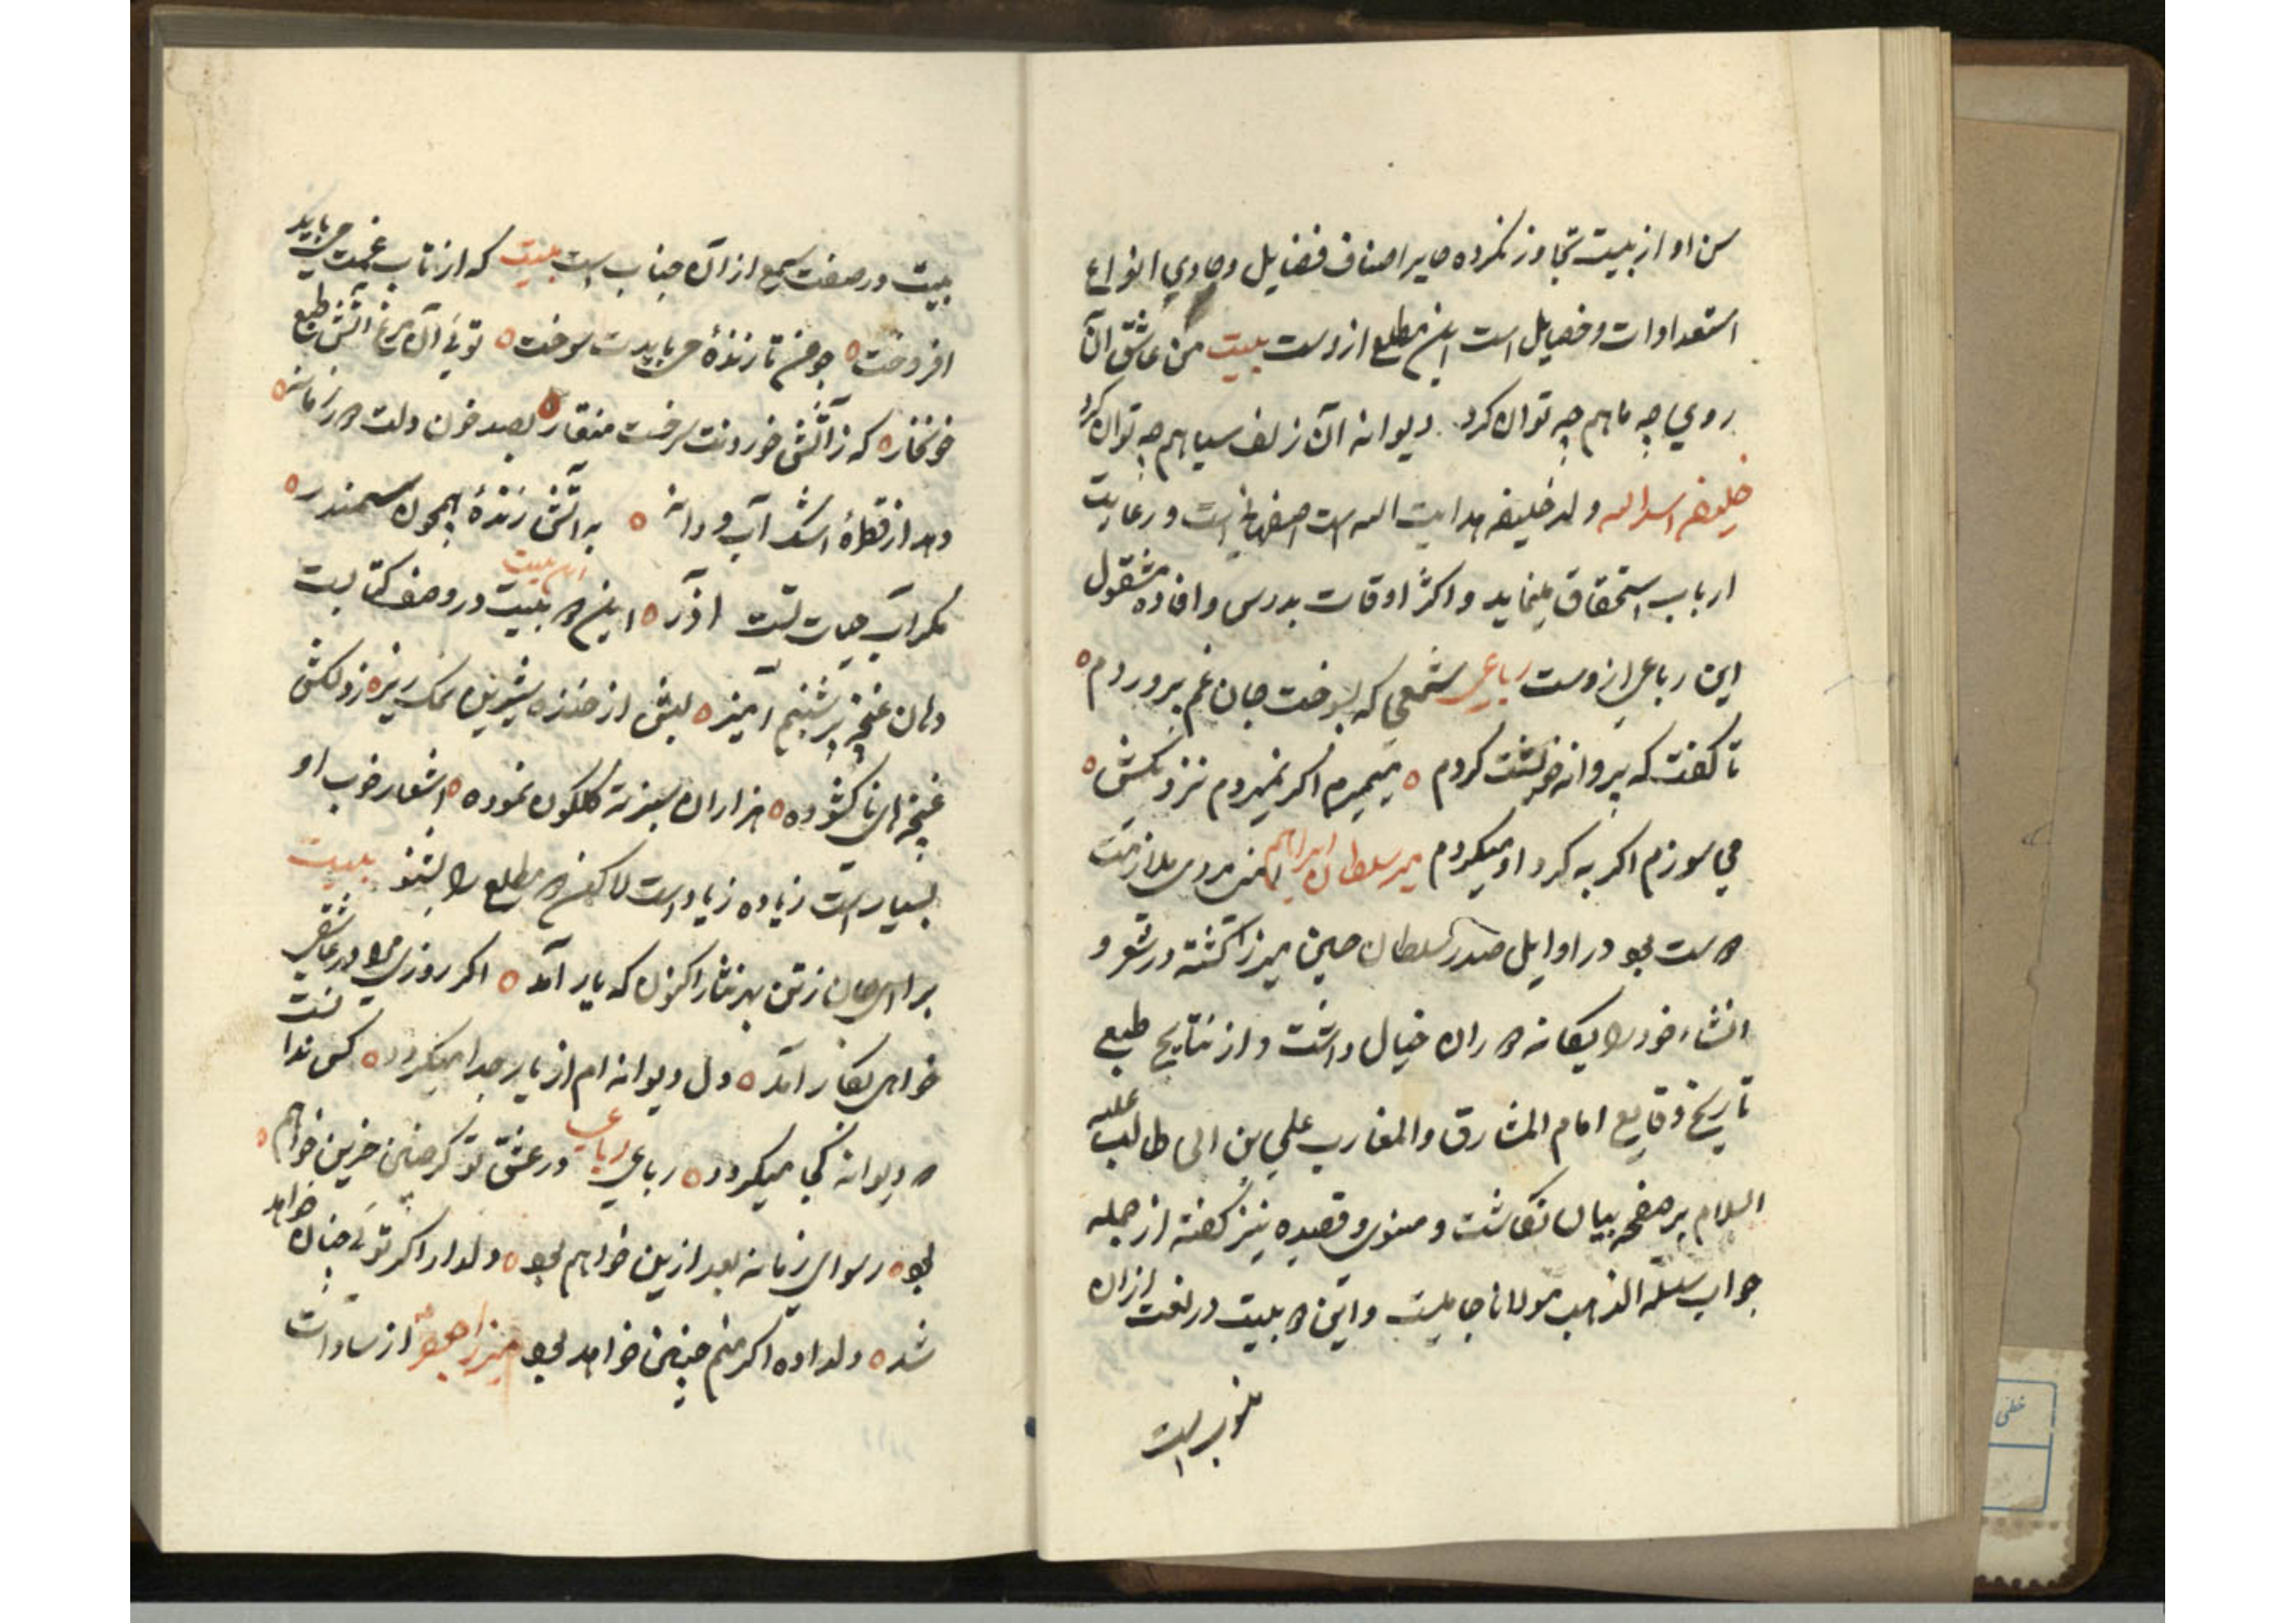 سن او از بیست تجاوز نکرده حایز اصناف فضایل و حاوی انواع
استعدادات و خصایل است این مطلع ازوست بیت من عاشق آن
روی چه ماهم چه توان کرد دیوانه آن زلف سیاهم چه توان کرد
خلیفه اسدالله ولد خلیفه هدایت الله است اصفهانی است و رعایت
ارباب استحقاق مینماید و اکثر اوقات بدرس و افاده مشغول
این رباعی ازوست رباعی شمعی که بسوخت جان غم پروردم
تا گفت که پروانه خویشت کردم میمیرم اگر نمیروم نزدیکش
می سوزم اگر به گرد او میگردم میر سلطان ابراهیم امینی مردی ملازمت
دوست بود در اوایل صدر سلطان حسین میرزا گشته در شعر و
انشاء خود را یگانه دوران خیال داشت و از نتایج طبع
تاریخ وقایع امام المشارق والمغارب علی بن ابی طالب علیه
السلام بر صفحه بیان نگاشت و مثنوی و قصیده نیز گفته از جمله
جواب سلسلة الذهب مولانا جامیست و این دو بیت در نعت ازان
منسوب است
بیت در صفت شمع از آن جناب است بیت که از تاب غمت می باید
افروخت چو من تا زنده می بایدت سوخت تویی آن مرغ آتش طبع
خونخاره که ز آتش خوردنت سرخست منقار بصد خون دلت در زمانه
دهد از قطره اشک آب و دانه به آتش زنده همچون سمندر
مگر آب حیات تست آذر این دو بیت در وصف کتابست
این بیت
دهان غنچه پر شبنم آمیز لبش از خنده شیرین نمک ریز ز دلکش
غنچهای ناگشوده هزاران سبزه گلگون نموده اشعار خوب او
بسیار است زیاده زیاد است لاکن دو مطلع را بشنو بیت
برا ای جان ز تن بهر نثار اکنون که یار آمد اگر روزی مرا در عاشقی
خواهی بکار آمد دل دیوانه ام از یار جدا میگردد کس ندانست
که دیوانه کجا میگردد رباعی رباعی در عشق تو گر چنین حزین خواهم
بود رسوای زمانه بعد ازین خواهم بود دلدار اگر تویی چنان خواهد
شد دلداده اگر منم چنین خواهد بود میرزا جعفر از سادات